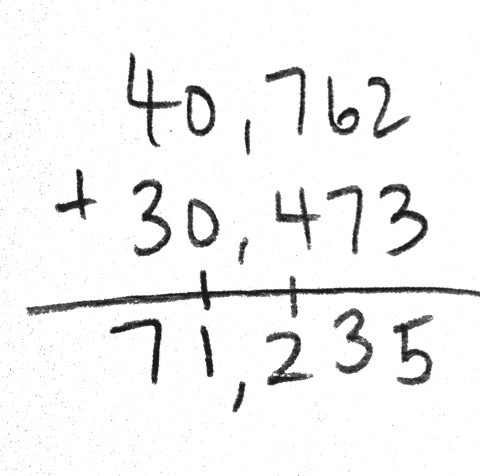 40,762
+ 30,473
71,235